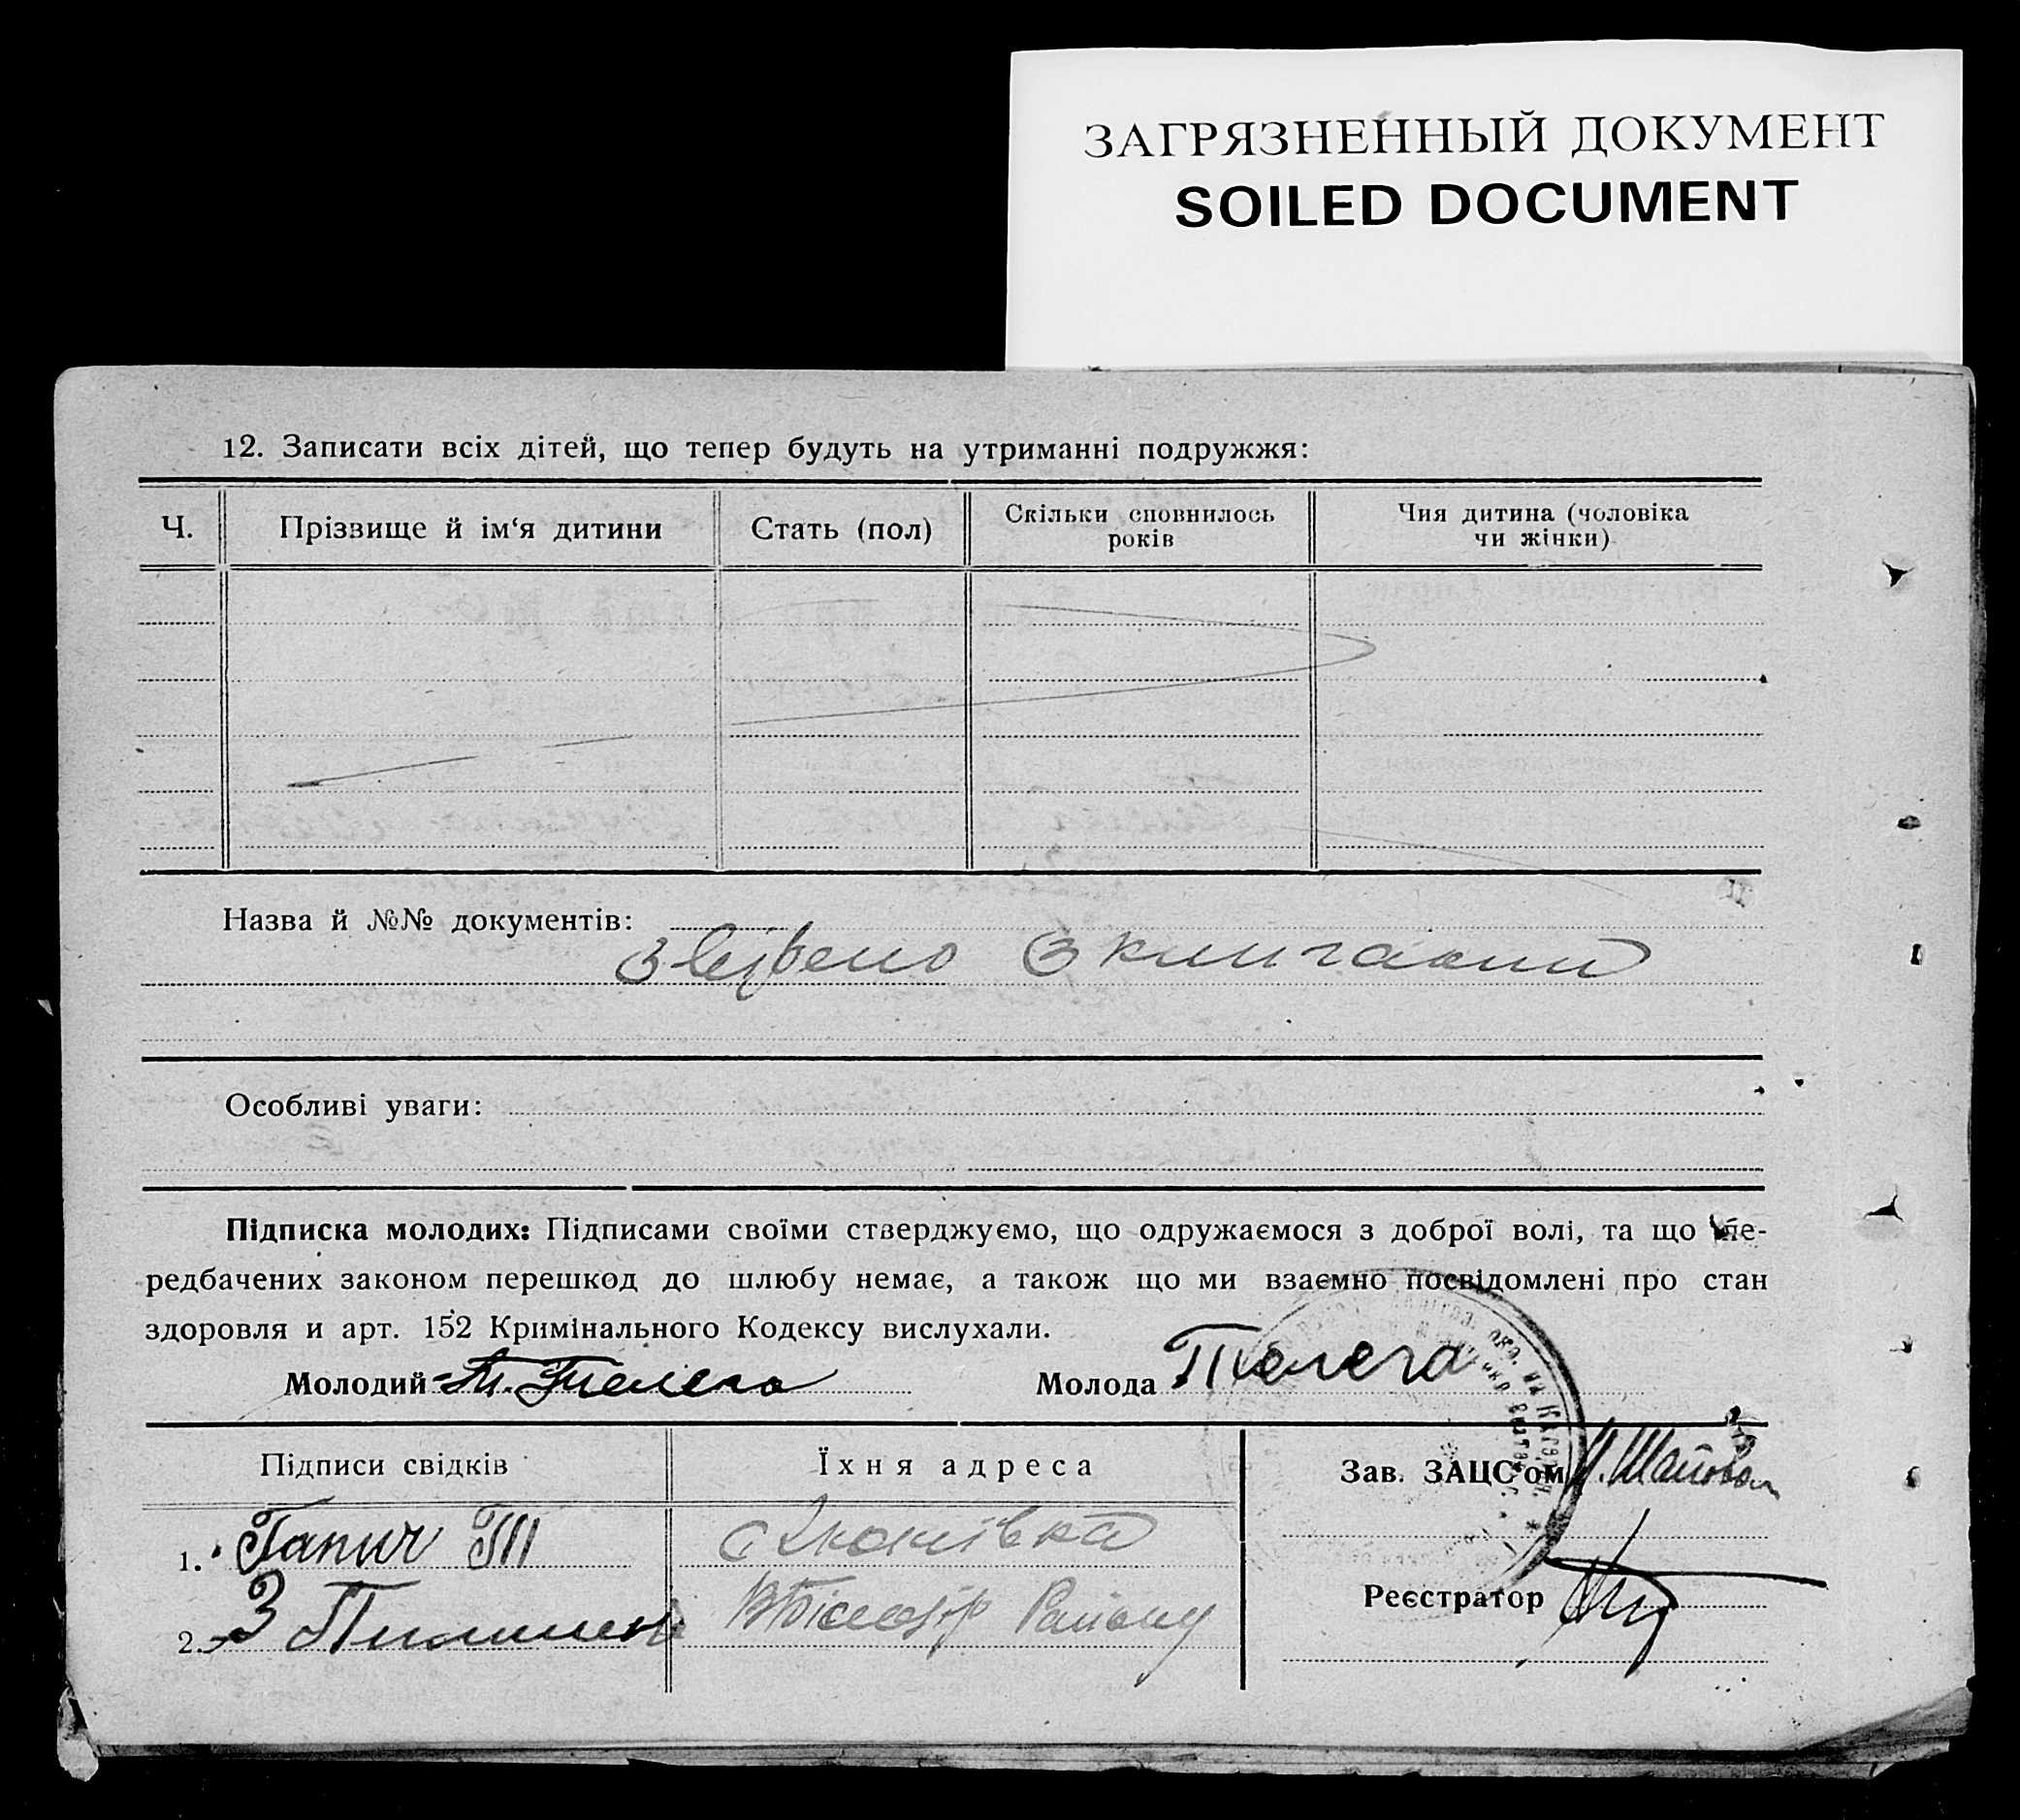 ЗАГРЯЗНЕННЫЙ ДОКУМЕНТ
SOILED DOCUMENT
12. Записати всіх дітей, що тепер будуть на утриманні подружжя:
Ч. Прізвище й ім‘я дитини Стать (пол) Скільки сповнилось років Чия дитина (чоловіка чи жінки)
Назва й №№ документів:
Особливі уваги:
Підписка молодих: Підписами своїми стверджуємо, що одружаємося з доброї волі, та що пе-
редбачених законом перешкод до шлюбу немає, а також що ми взаємно посвідомлені про стан
здоровля и арт. 152 Кримінального Кодексу вислухали.
Молодий Телега Молода Телега
Підписи свідків Їхня адреса Зав. ЗАЦС'ом
1. Папич
2. З
Реєстратор